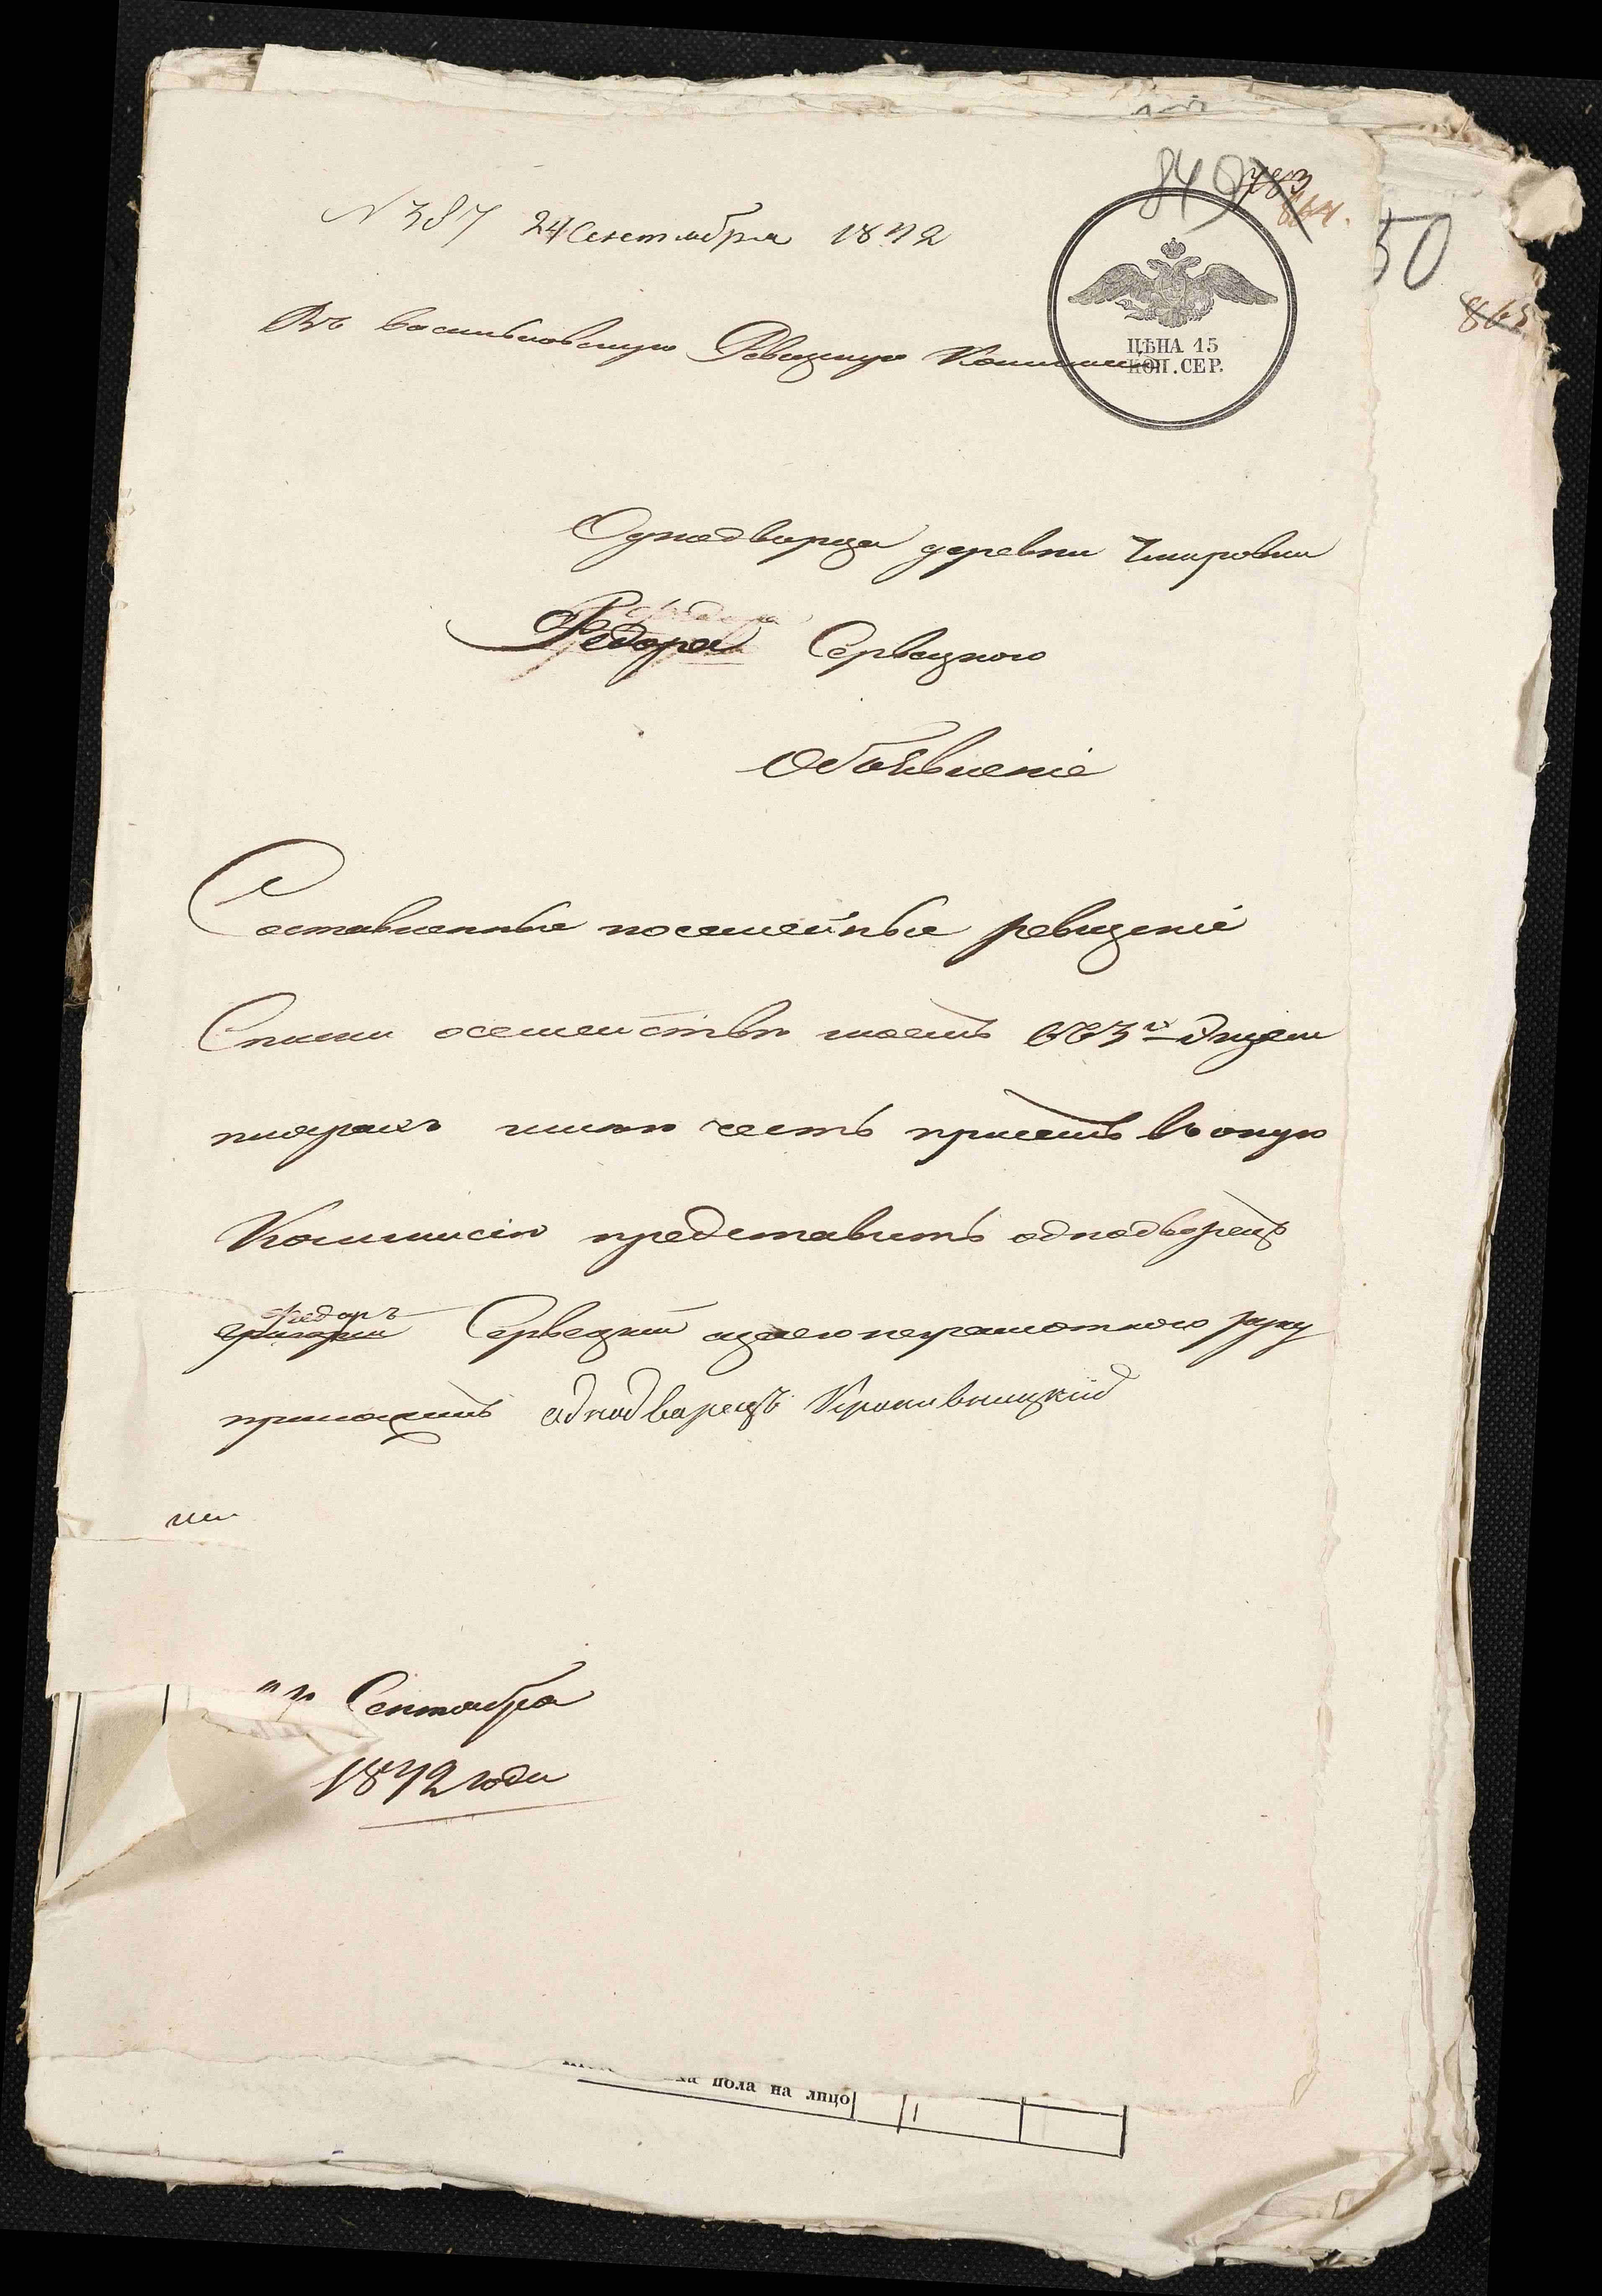 849 783
864.
50
865
N 387 24 Сентября 1872
Въ васильковскую Ревизскую Комисию
ЦѢНА 15
КОП. СЕР.
Однодворца деревни Чмировки
Федора Сервацкого
Объявленіе
Составленные посемейные ревизкіе
Списки осемействѣ моемъ въ 3х Экзем
плярахъ имѣю честь присемъ въ оную
Коммисію представить однодворецъ
Федоръ
григорій Сервацкій азаего неграмотного руку
приложилъ однодворецъ Кропивницкій
Сентября
1872 года
пола на лицо